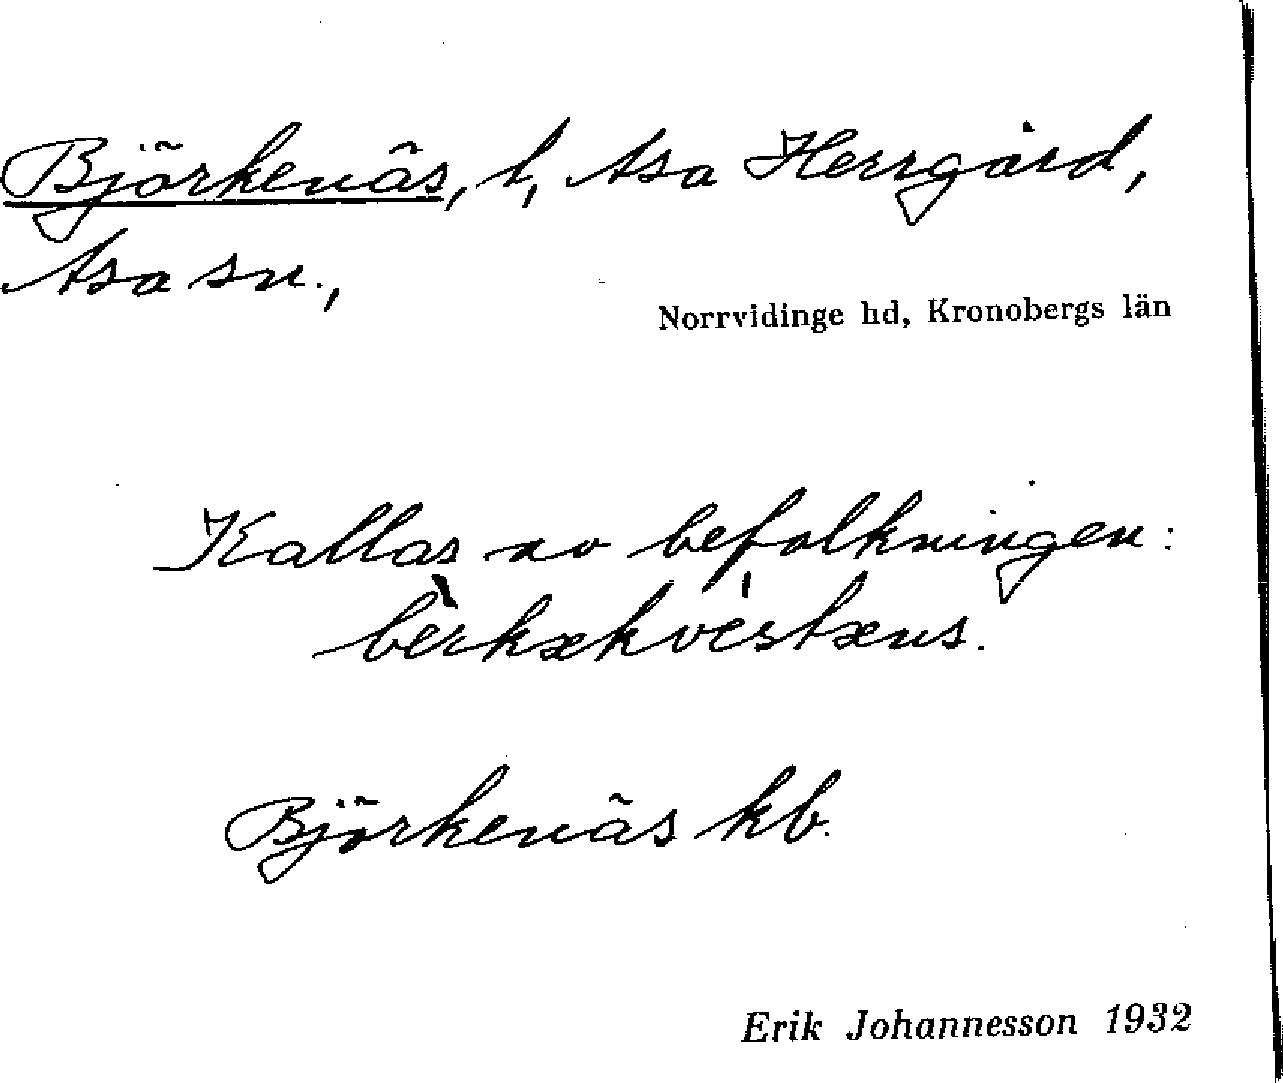 Björkenäs, t, Asa Herrgård,
Asa sn.,
Norrvidinge hd, Kronobergs län
Kallas av befolkningen:
Björkenäs kb.
Erik Johannesson 1932